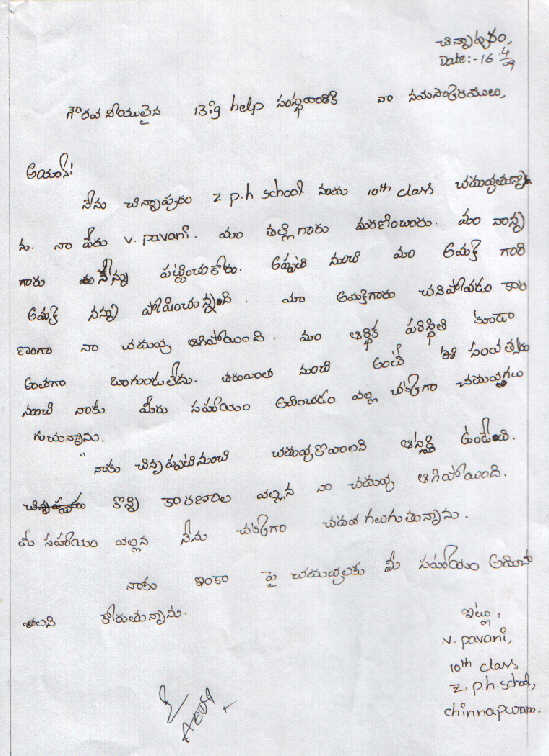 చిన్నాపురం,
Date:-16 4/09
గౌరవనీయులైన 13;9 help సంస్థవారికి నా నమస్కారములు,
అయ్యా!
నేను చిన్నాపురం z p.h school నందు 10th class చదువుతున్నా
ను. నా పేరు v. pavani. మా తల్లి గారు మరణించారు. మా నాన్న
గారు నన్ను పట్టించుకోరు. అప్పటి నుంచి మా అమ్మమ్మ గారి
అమ్మ నన్ను పోషించుచున్నది. మా అమ్మగారు చనిపోవడం కార
ణంగా నా చదువు ఆగిపోయింది. మా ఆర్థిక పరిస్థితి కూడా
అంతగా బాగుండలేదు. తరువాత నుంచి అంటే సంవత్సరం
నుంచి నాకు మీరు సహాయం అందించడం వల్ల చక్కగా చదువగలు
గుచున్నాను.
నాకు చిన్నప్పటినుంచి చదువుకోవాలని ఆసక్తి ఉండేది.
కొన్ని కారణాల వల్లన నా చదువు ఆగిపోయింది.
మీ సహాయం వల్లన నేను చక్కగా చదువ గలుగుతున్నాను.
నాకు ఇంకా పై చదువులకు మీ సహాయం అందిం
చాలని కోరుతున్నాను.
ఇట్లు,
v. pavani,
10th class
z. p.h school,
chinnapuram.